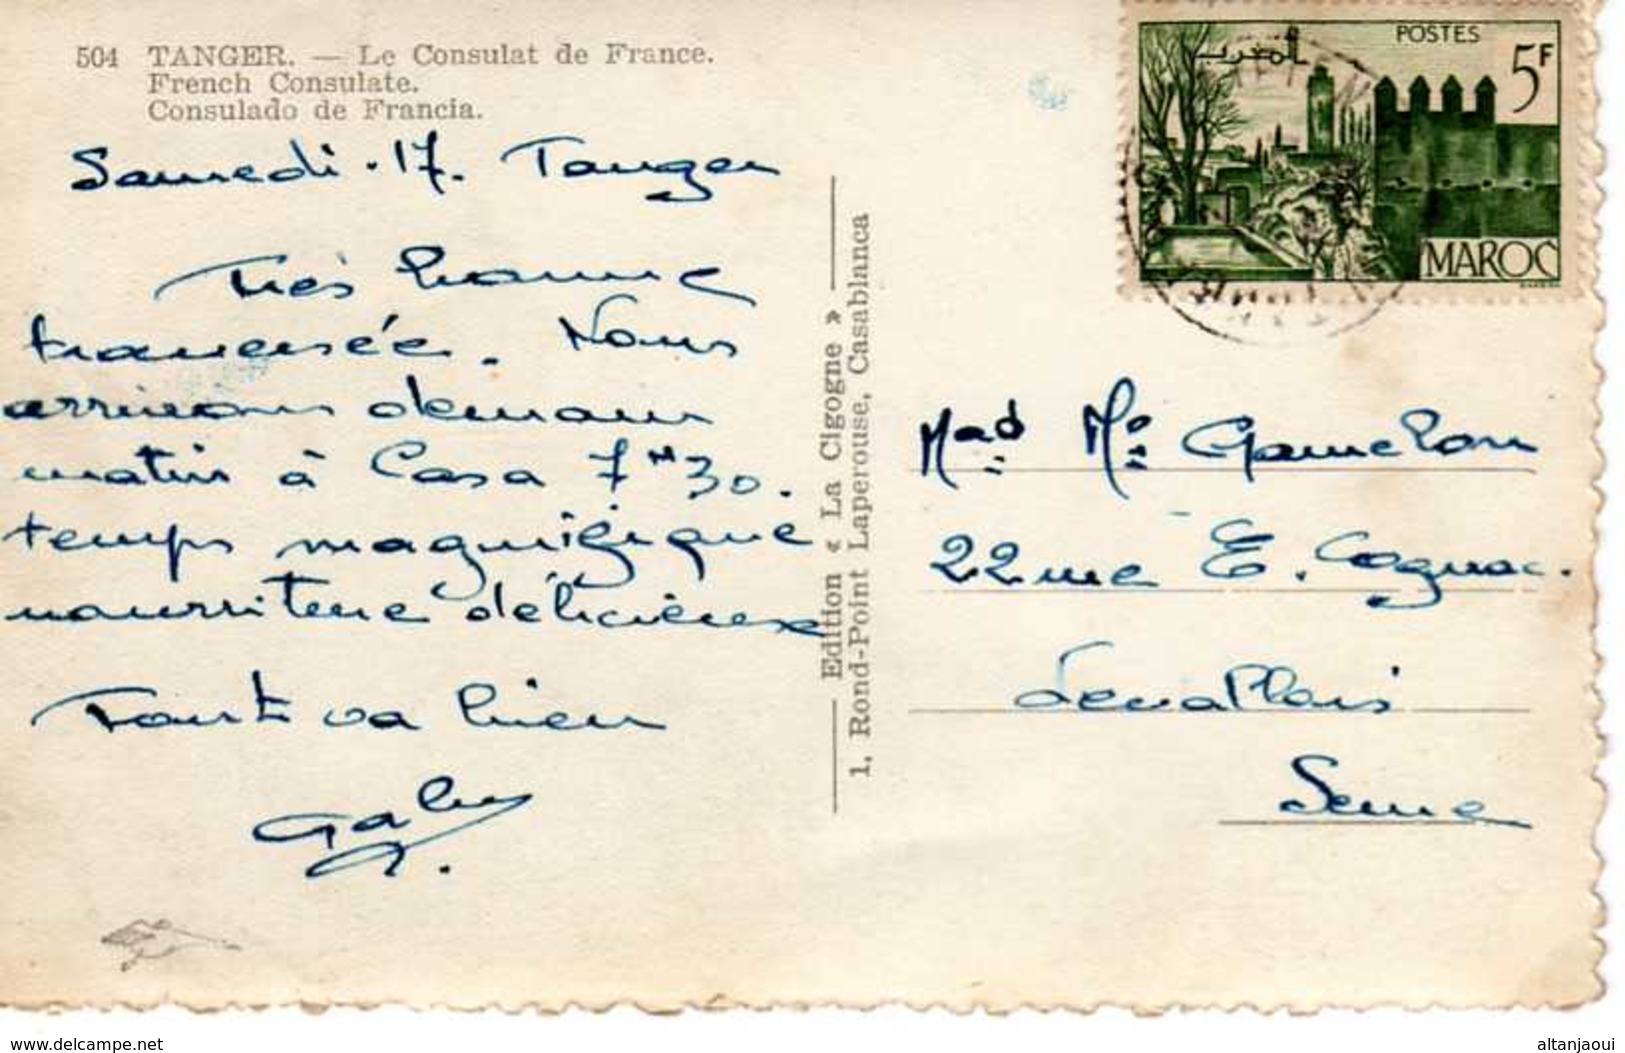 504 TANGER. — Le Consulat de France.
French Consulate.
Consulado de Francia.
Samedi .17. Tanger
Très bonne
traversée. Nous
arriverons demain
matin à Casa 7H30.
temps magnifique
nourriture délicieuse
Tout va bien
Gaby
Edition « La Cigogne »
1, Rond-Point Laperouse, Casablanca
POSTES
5F
المغرب
MAROC
Mad Mr Gamelon
22 rue E. Cognac.
Levallois
Seine
www.delcampe.net
altanjaoui